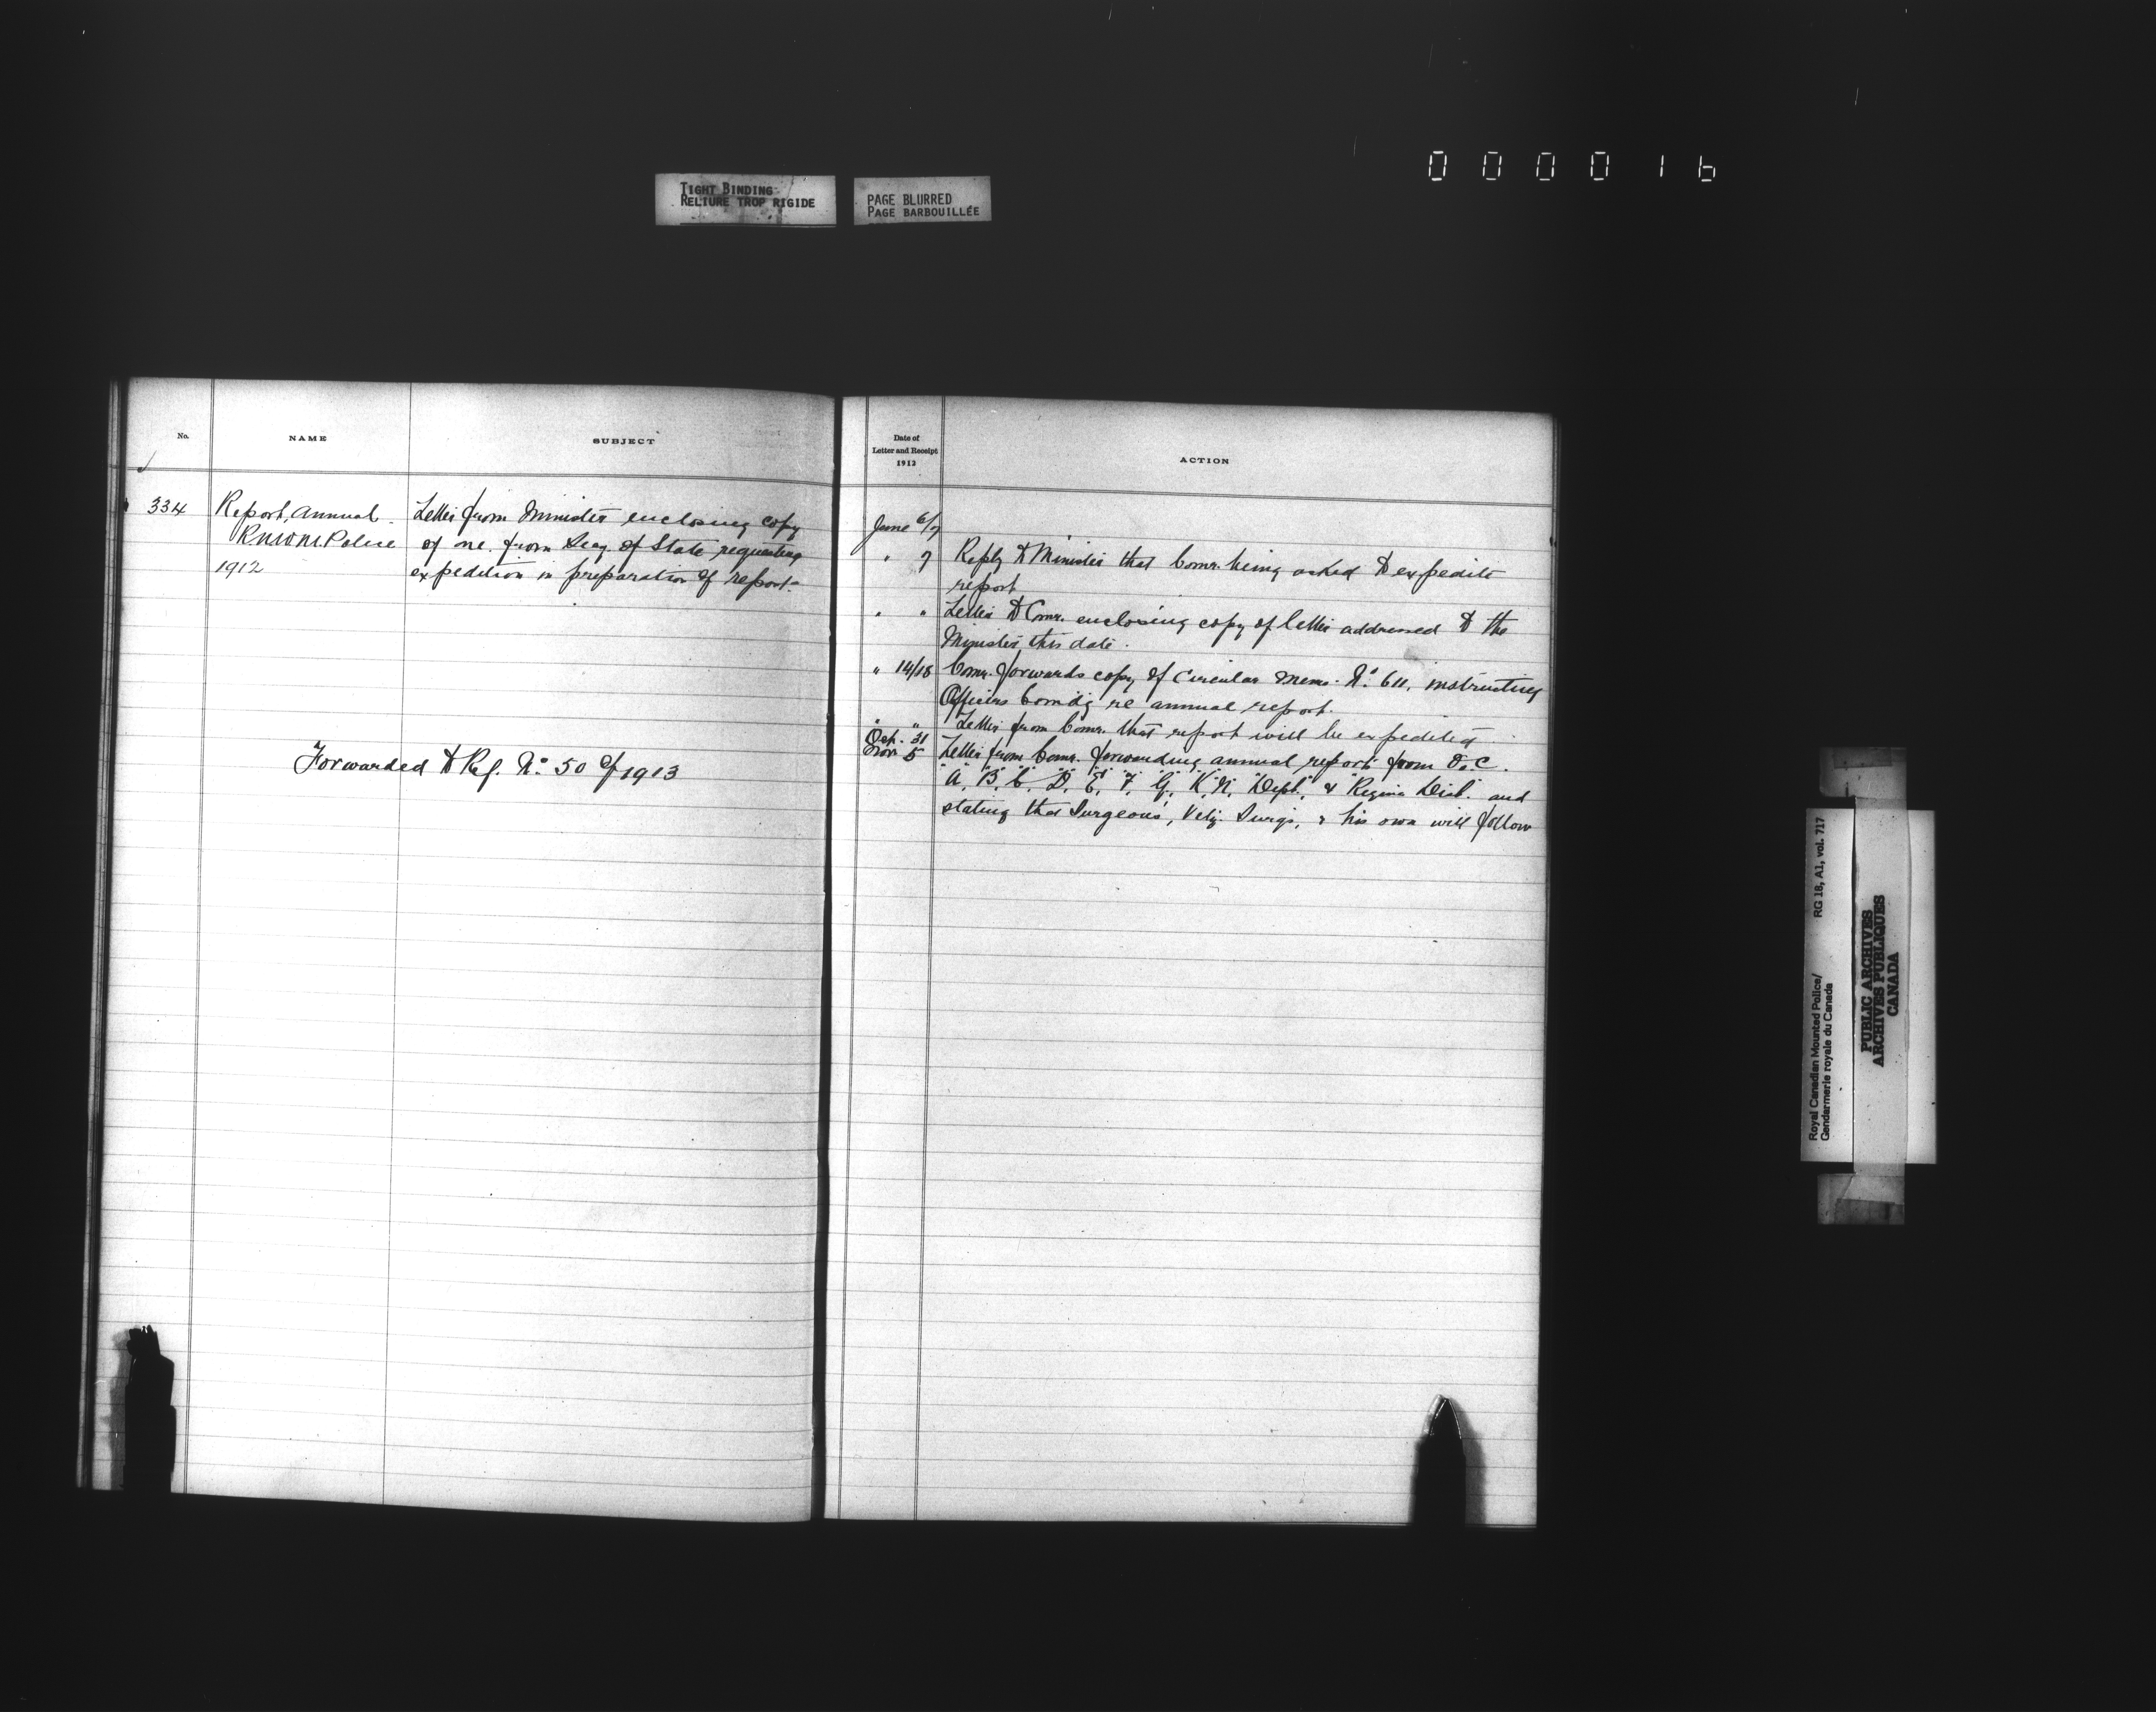 000016
TIGHT BINDING
RELIURE TROP RIGIDE
PAGE BLURRED
PAGE BARBOUILLÉE
No.
NAME
SUBJECT
334
Report, Annual
R.N.W.M. Police
1912
Letter from Minister enclosing copy
of one from Secy. of State requesting
expedition in preparation of report.
Forwarded to Ref. No. 50 of 1913
Date of
Letter and Receipt
1912
ACTION
June 6/7
" 7 Reply to Minister that Comr. being asked to expedite
report
" " Letter to Comr. enclosing copy of letter addressed to the
Minister this date.
" 14/18 Comr. forwards copy of Circular Memo. No. 611, instructing
Officers Comdg re annual report.
" " Letter from Comr. that report will be expedited
Oct. 31
Nov 5 Letter from Comr. forwarding annual report from O.C.
"A", "B", "C", "D", "E", "F", "G", "K", "N", "Depot", & Regina Dist. and
stating that Surgeons', Vety. Surgs, & his own will follow
Royal Canadian Mounted Police/
Gendarmerie royale du Canada
RG 18, A1, vol. 717
PUBLIC ARCHIVES
ARCHIVES PUBLIQUES
CANADA